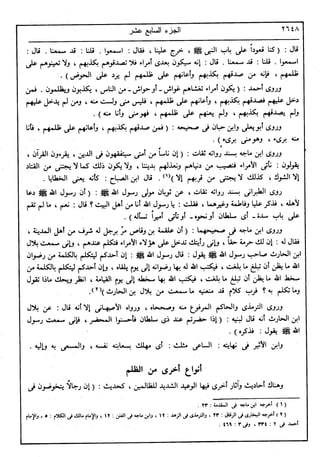 ٢٦٤٨ الجزء السابع عشر
قال : ( كنا قعوداً على باب النبي ﷺ ، خرج علينا ، فقال : اسمعوا . قلنا : قد سمعنا . قال :
اسمعوا . قلنا : قد سمعنا . قال : إنه سيكون بعدي أمراء فلا تصدقوهم بكذبهم ، ولا تعينوهم على
ظلمهم ، فإنه من صدقهم بكذبهم وأعانهم على ظلمهم لم يرد على الحوض ) .
وروى أحمد : ( يكون أمراء تغشاهم غواش - أو حواش - من الناس ، يكذبون ويظلمون . فمن
دخل عليهم فصدقهم بكذبهم ، وأعانهم على ظلمهم ، فليس مني ولست منه ، ومن لم يدخل عليهم
ولم يصدقهم بكذبهم ، ولم يعنهم على ظلمهم ، فهو مني وأنا منه ) .
وروى أبو يعلى وابن حبان في صحيحه : ( فمن صدقهم بكذبهم ، وأعانهم على ظلمهم ، فأنا
منه بريء ، وهو مني بريء ) .
وروى ابن ماجه بسند رواته ثقات : ( إن ناساً من أمتي سيتفقهون في الدين ، يقرءون القرآن ،
يقولون : نأتي الأمراء فنصيب من دنياهم ونعتزلهم بديننا ، ولا يكون ذلك كما لا يجتنى من القتاد
إلا الشوك ، كذلك لا يجتنى من قربهم إلا )(١) . قال ابن الصباح : كأنه يعني الخطايا .
وروى الطبراني بسند رواته ثقات ، عن ثوبان مولى رسول الله ﷺ : ( أن رسول الله ﷺ دعا
لأهله ، فذكر علياً وفاطمة وغيرهما ، فقلت : يا رسول الله أنا من أهل البيت ؟ قال : نعم ، ما لم تقم
على باب سدة - أي سلطان أو نحوه - أو تأتي أميراً تسأله ) .
وروى ابن ماجه في صحيحهما : ( أن علقمة بن وقاص مرّ برجل له شرف من أهل المدينة ،
فقال له : إن لك حرمة حقاً ، وإني رأيتك تدخل على هؤلاء الأمراء فتكلم عندهم ، وإني سمعت بلال
ابن الحارث صاحب رسول الله ﷺ يقول : قال رسول الله ﷺ : إن أحدكم ليتكلم بالكلمة من رضوان
الله ما يظن أن تبلغ ما بلغت ، فيكتب الله له بها رضوانه إلى يوم يلقاه ، وإن أحدكم ليتكلم بالكلمة من
سخط الله ما يظن أن تبلغ ما بلغت ، فيكتب الله بها سخطه إلى يوم القيامة ، انظر ويحك ماذا تقول
وما تكلم به ؟ فرب كلام قد منعنيه ما سمعت من بلال بن الحارث )(٢) .
وروى الترمذي والحاكم المرفوع منه وصححاه ، ورواه الأصبهاني إلا أنه قال : عن بلال
ابن الحارث أنه قال لبنيه : ( إذا حضرتم عند ذي سلطان فأحسنوا المحضر ، فإني سمعت رسول
الله ﷺ يقول : فذكره ) .
وابن الأثير في نهايته : الساعي مثلث : أي مهلك بسعايته نفسه ، والمسعي به وإليه .
أنواع أخرى من الظلم
وهناك أحاديث وآثار أخرى فيها الوعيد الشديد للظالمين ، كحديث : ( إن رجالاً يتخوضون في
(١) أخرجه ابن ماجه في المقدمة : ٢٣ .
(٢) أخرجه البخاري في الرقاق : ٢٣ ، والترمذي في الزهد : ١٢ ، وابن ماجه في الفتن : ١٢ ، والإمام مالك في الكلام : ٥ ، والإمام
أحمد في ٢ : ٣٣٤ ، وفي ٣ : ٤٦٩ .